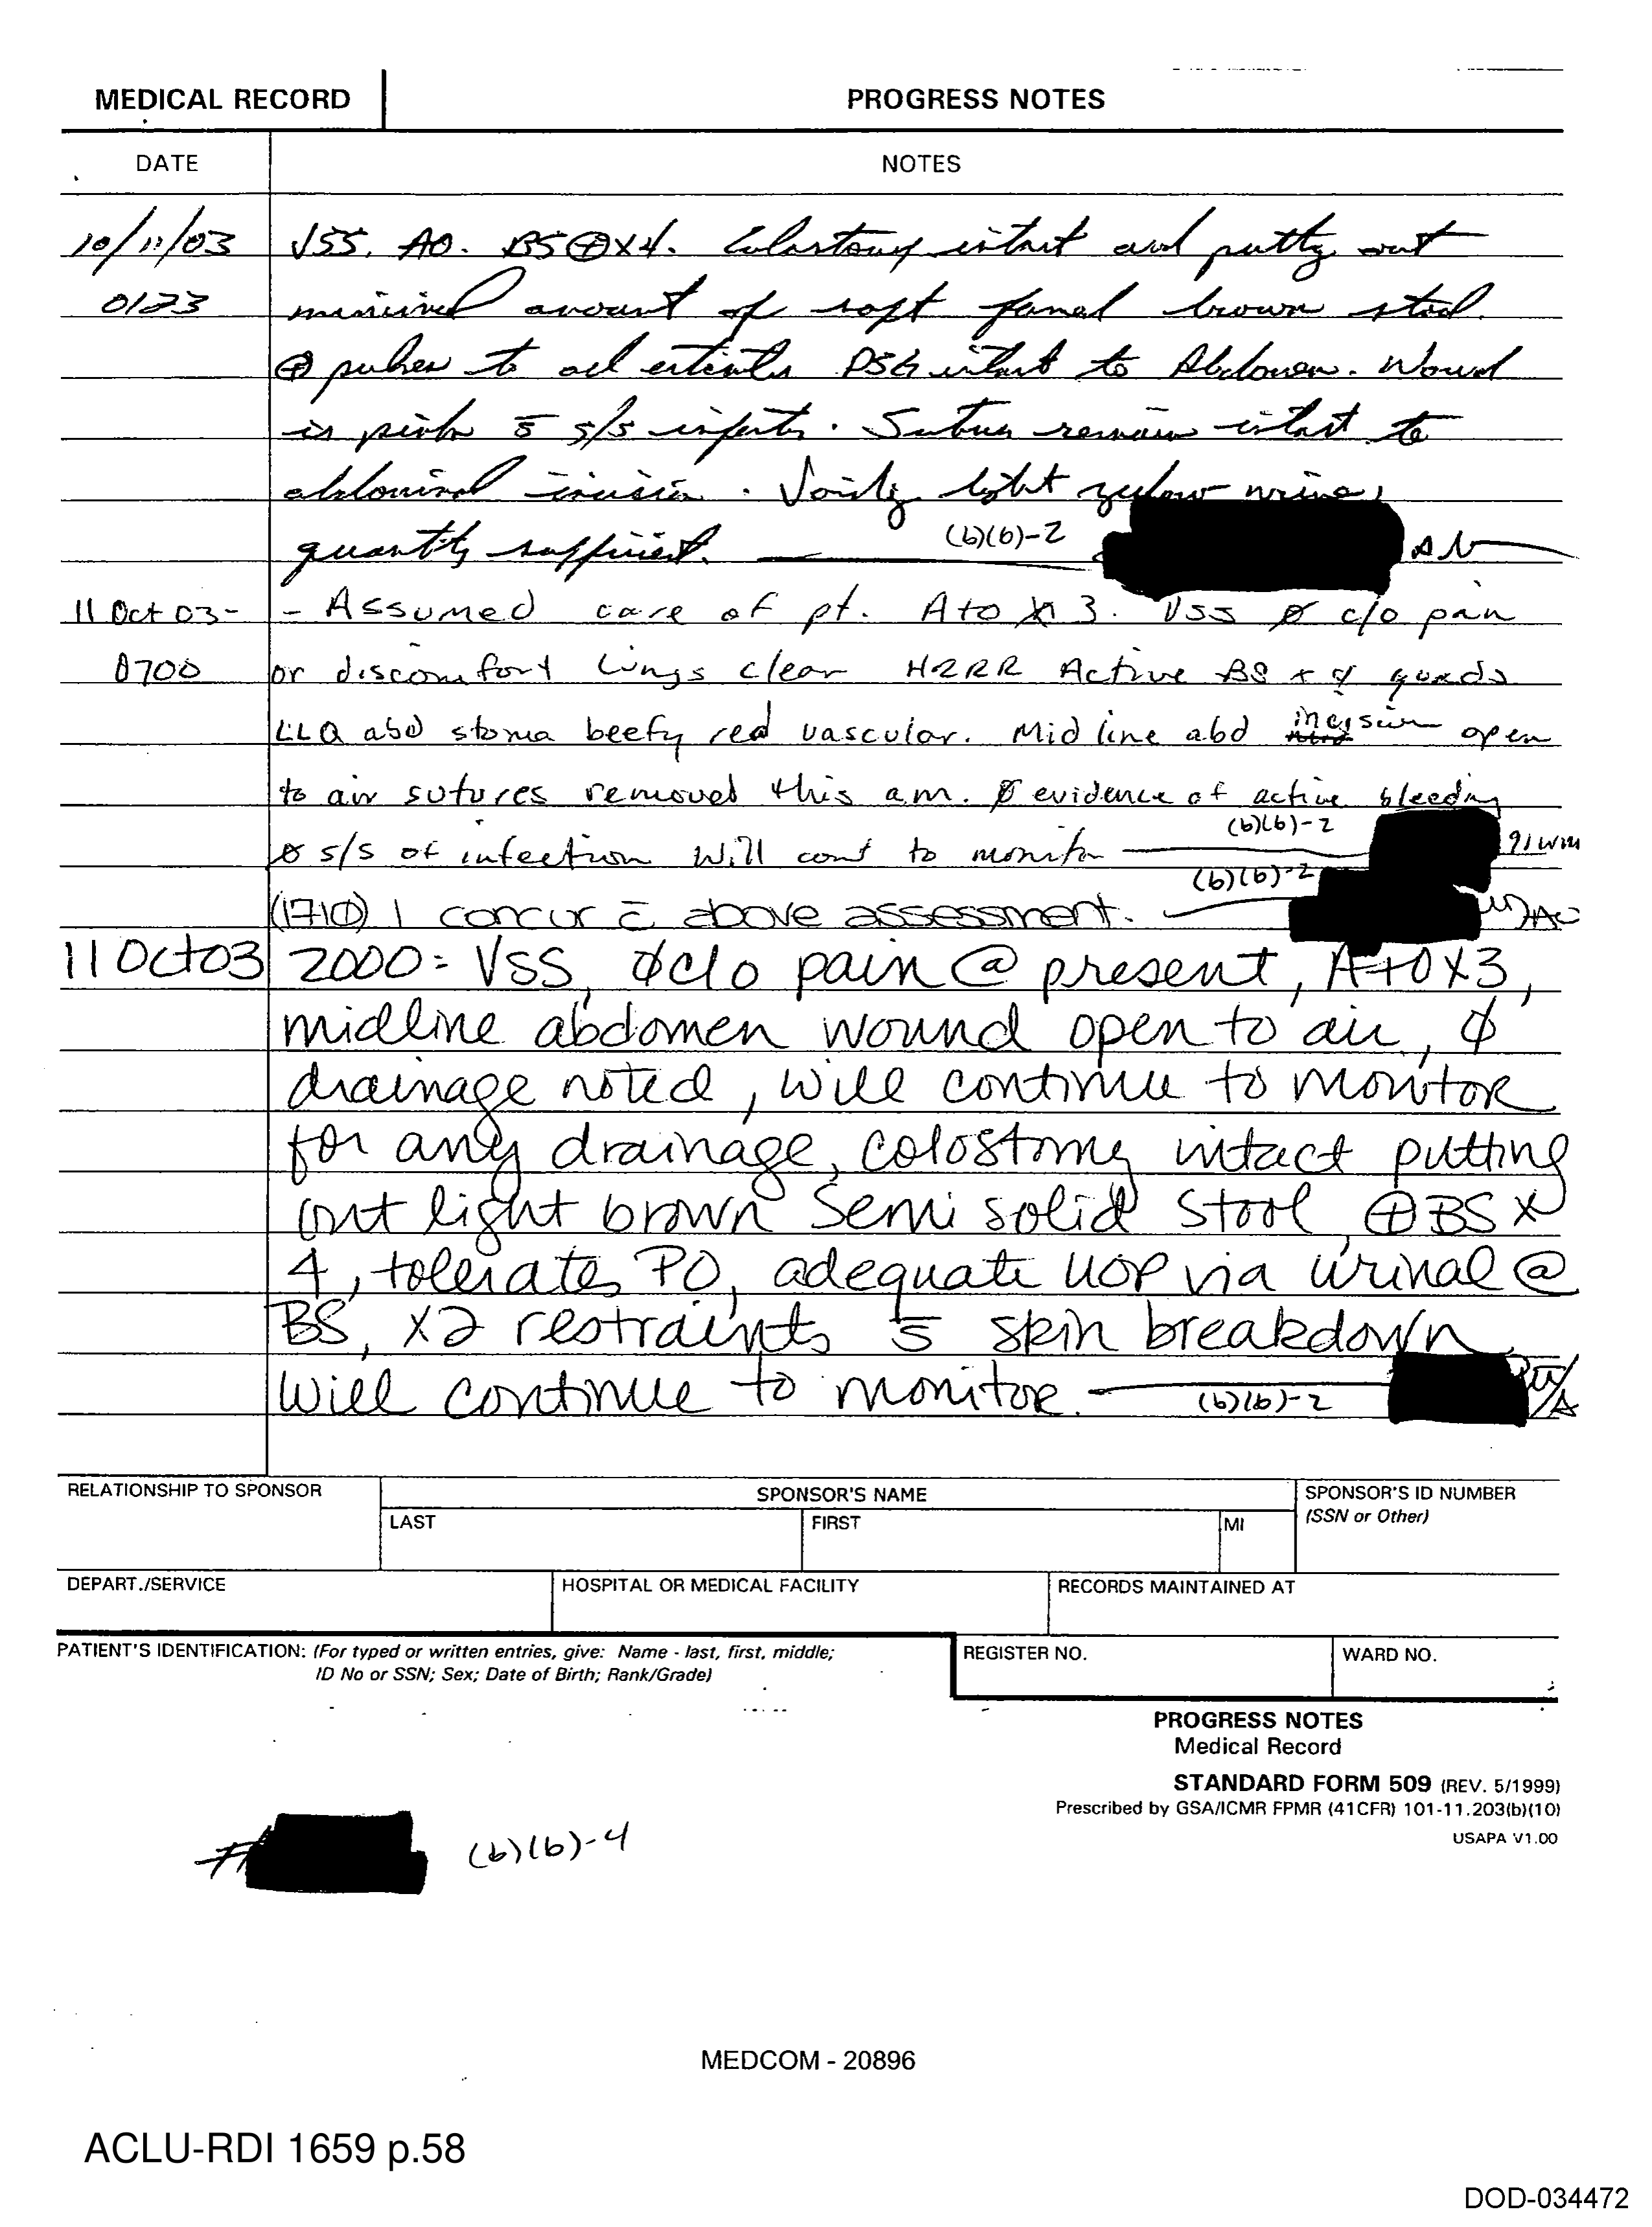 MEDICAL RECORD
PROGRESS NOTES
DATE
NOTES
10/11/03 VSS. AO. BS⊕X4. Colostomy intact and putting out
0123 minimal amount of soft formed brown stool.
⊕ pulses to all DSG intact to Abdomen. Wound
is pink s̄ s/s infection. Sutures remain intact to
abdominal incision. Voiding light yellow urine,
quantity sufficient. (b)(6)-2 AN
11 Oct 03- - Assumed care of pt. A+O X 3. VSS Ø c/o pain
0700 or discomfort Lungs clear HRRR Active BS x 4 quads
LLQ abd stoma beefy red vascular. Midline abd incision open
to air sutures removed this am. Ø evidence of active bleeding
Ø s/s of infection Will cont to monitor (b)(6)-2 91WM6
(1710) I concur c̄ above assessment. (b)(6)-2
11 Oct 03 2000: VSS, Øc/o pain @ present, A+OX3,
midline abdomen wound open to air, Ø
drainage noted, will continue to monitor
for any drainage, colostomy intact putting
out light brown semi solid stool, ⊕BS x
4, tolerates PO, adequate UOP via urinal @
BS, x2 restraints s̄ skin breakdown,
will continue to monitor. (b)(6)-2
RELATIONSHIP TO SPONSOR
SPONSOR'S NAME
SPONSOR'S ID NUMBER
(SSN or Other)
LAST
FIRST
MI
DEPART./SERVICE
HOSPITAL OR MEDICAL FACILITY
RECORDS MAINTAINED AT
PATIENT'S IDENTIFICATION: (For typed or written entries, give: Name - last, first, middle;
ID No or SSN; Sex; Date of Birth; Rank/Grade)
REGISTER NO.
WARD NO.
PROGRESS NOTES
Medical Record
STANDARD FORM 509 (REV. 5/1999)
Prescribed by GSA/ICMR FPMR (41CFR) 101-11.203(b)(10)
USAPA V1.00
# (b)(6)-4
MEDCOM - 20896
ACLU-RDI 1659 p.58
DOD-034472